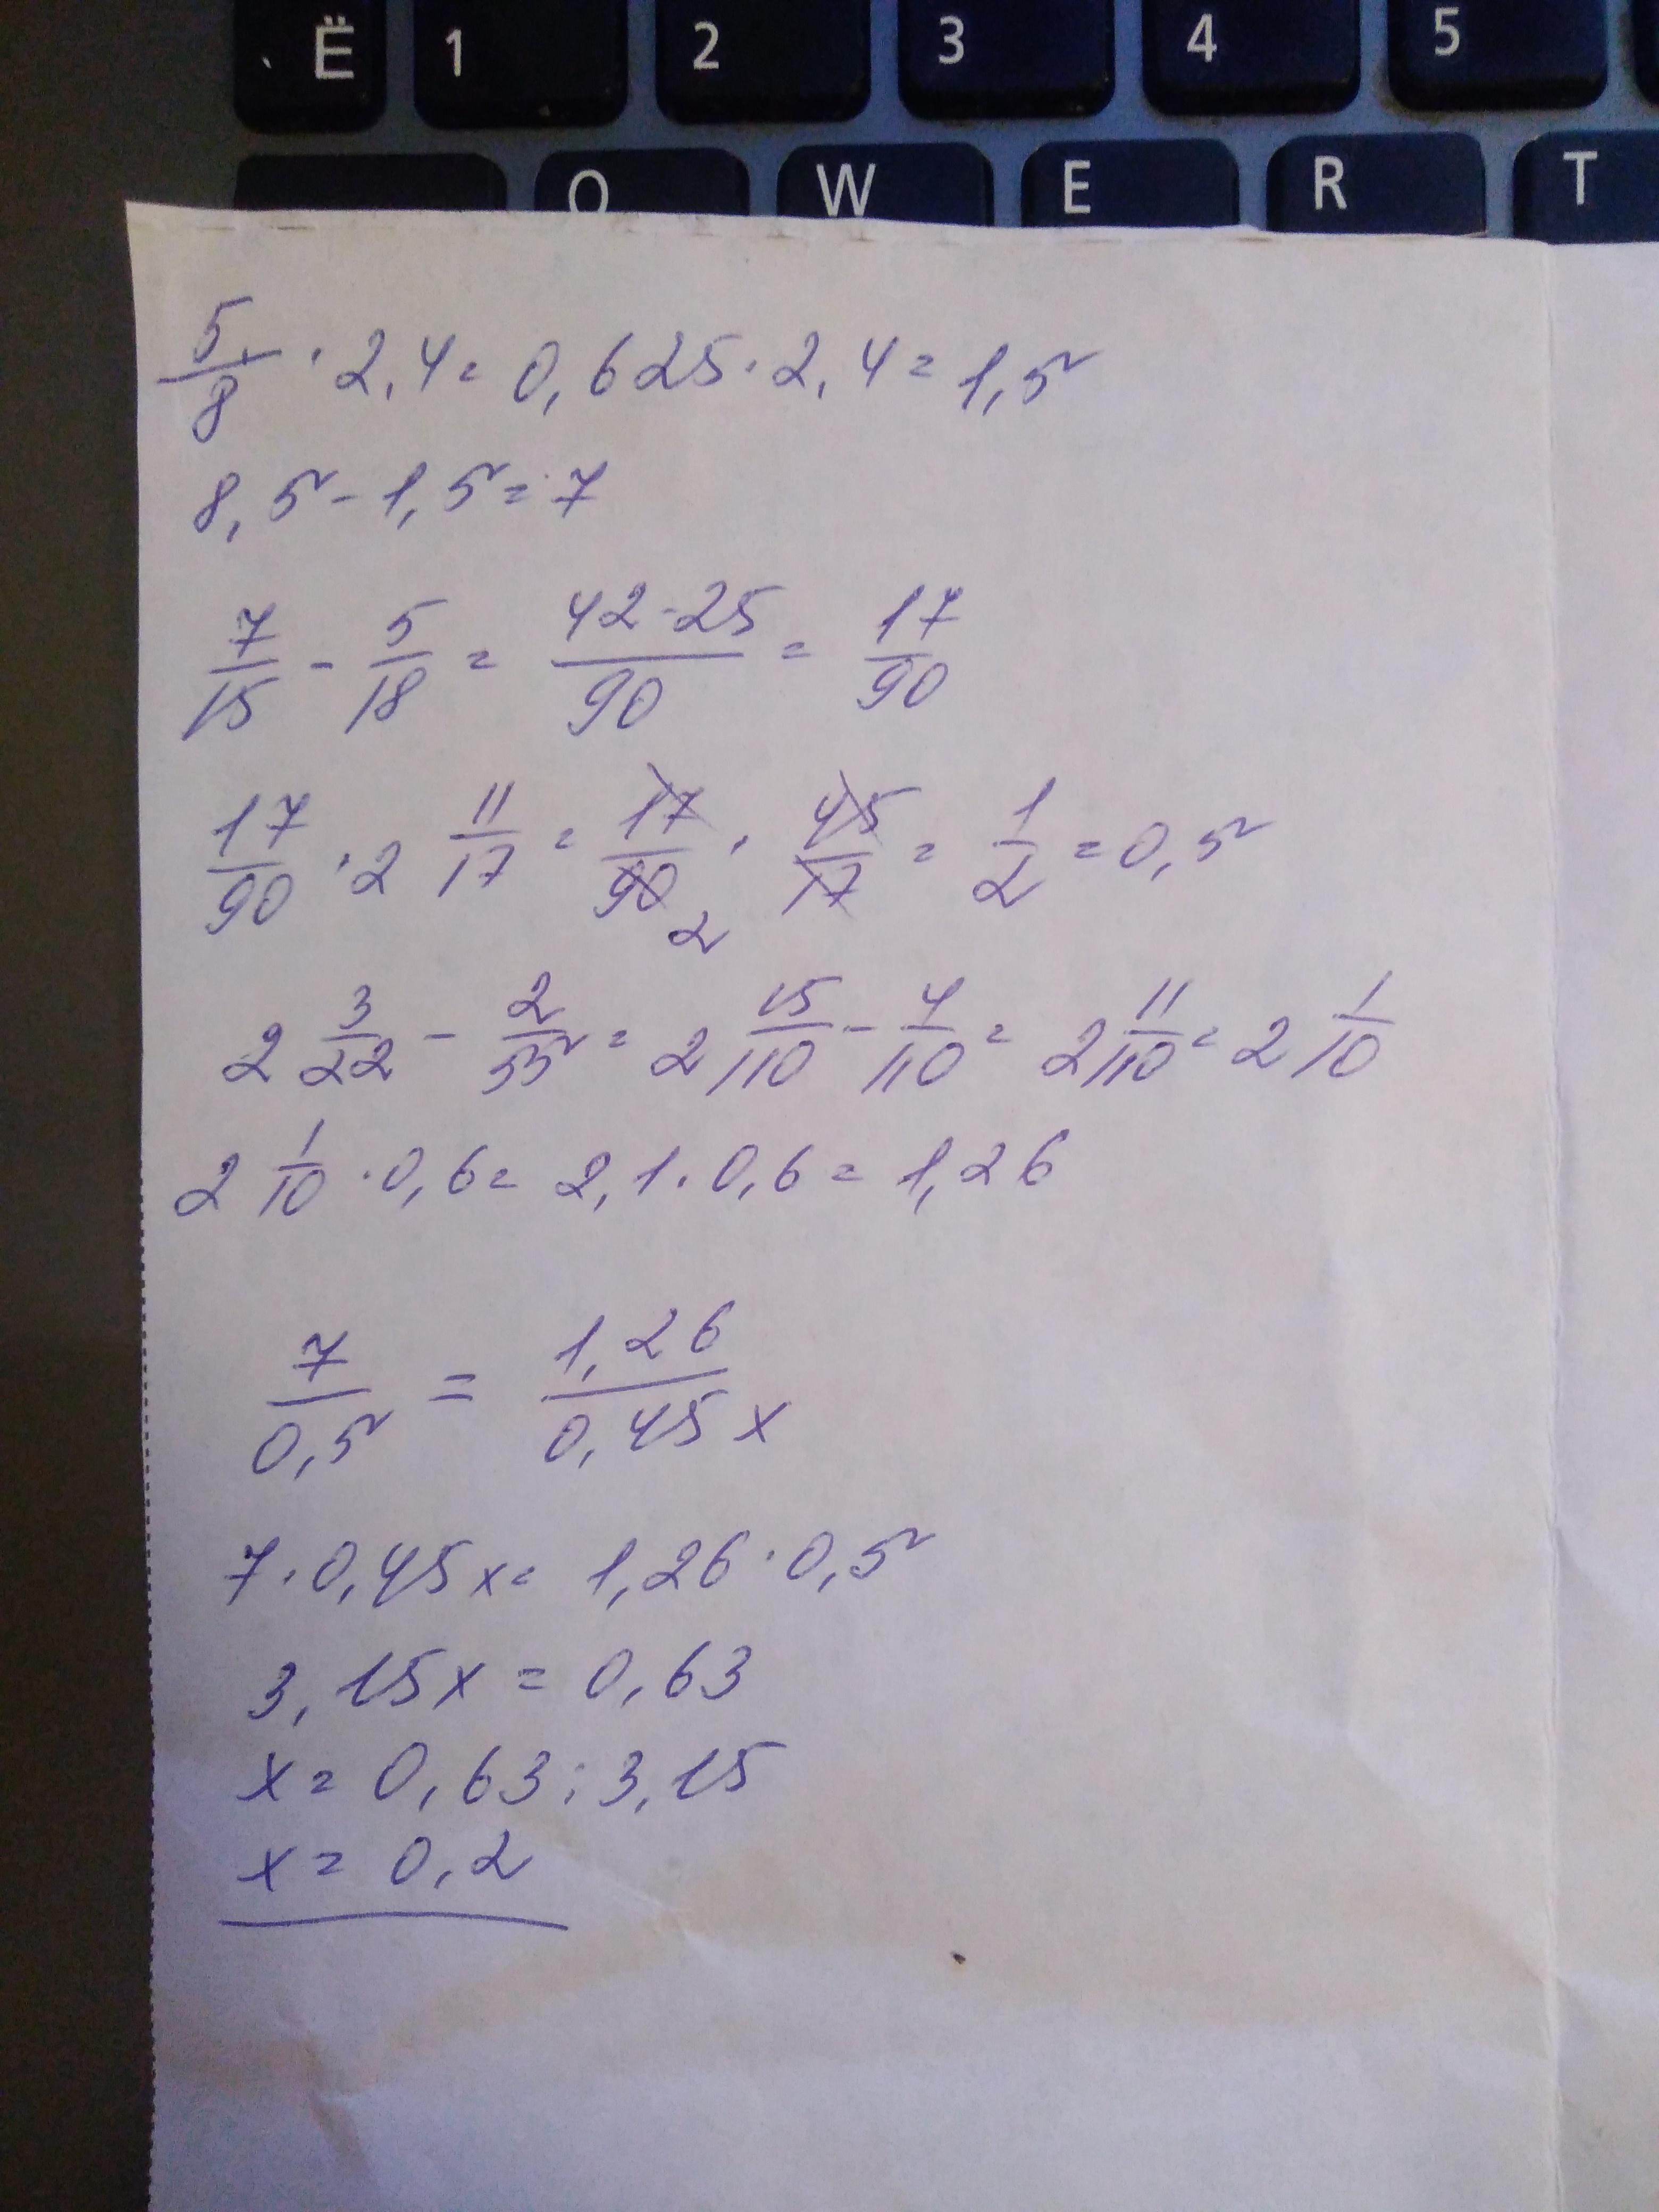 Ё 1 2 3 4 5
Q W E R T
5/8 · 2,4 = 0,625 · 2,4 = 1,5
8,5 - 1,5 = 7
7/15 - 5/18 = 42-25/90 = 17/90
17/90 · 2 11/17 = 17/90 · 45/17 = 1/2 = 0,5
2
2 3/22 - 2/55 = 2 15/110 - 4/110 = 2 11/110 = 2 1/10
2 1/10 · 0,6 = 2,1 · 0,6 = 1,26
7/0,5 = 1,26/0,45x
7 · 0,45x = 1,26 · 0,5
3,15x = 0,63
x = 0,63 : 3,15
x = 0,2